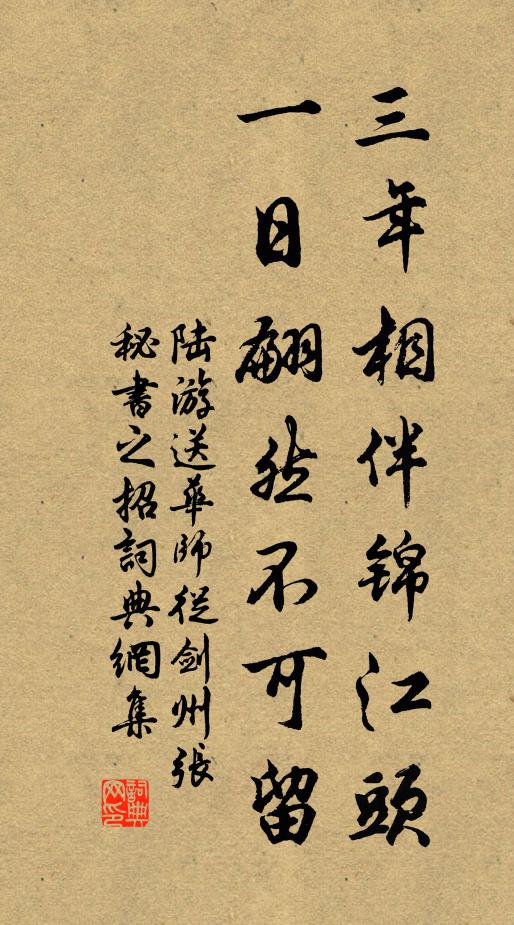 三年相伴錦江頭
一日翩然不可留
陆游送華師從劍州張
秘書之招詞典網集
詞典網印